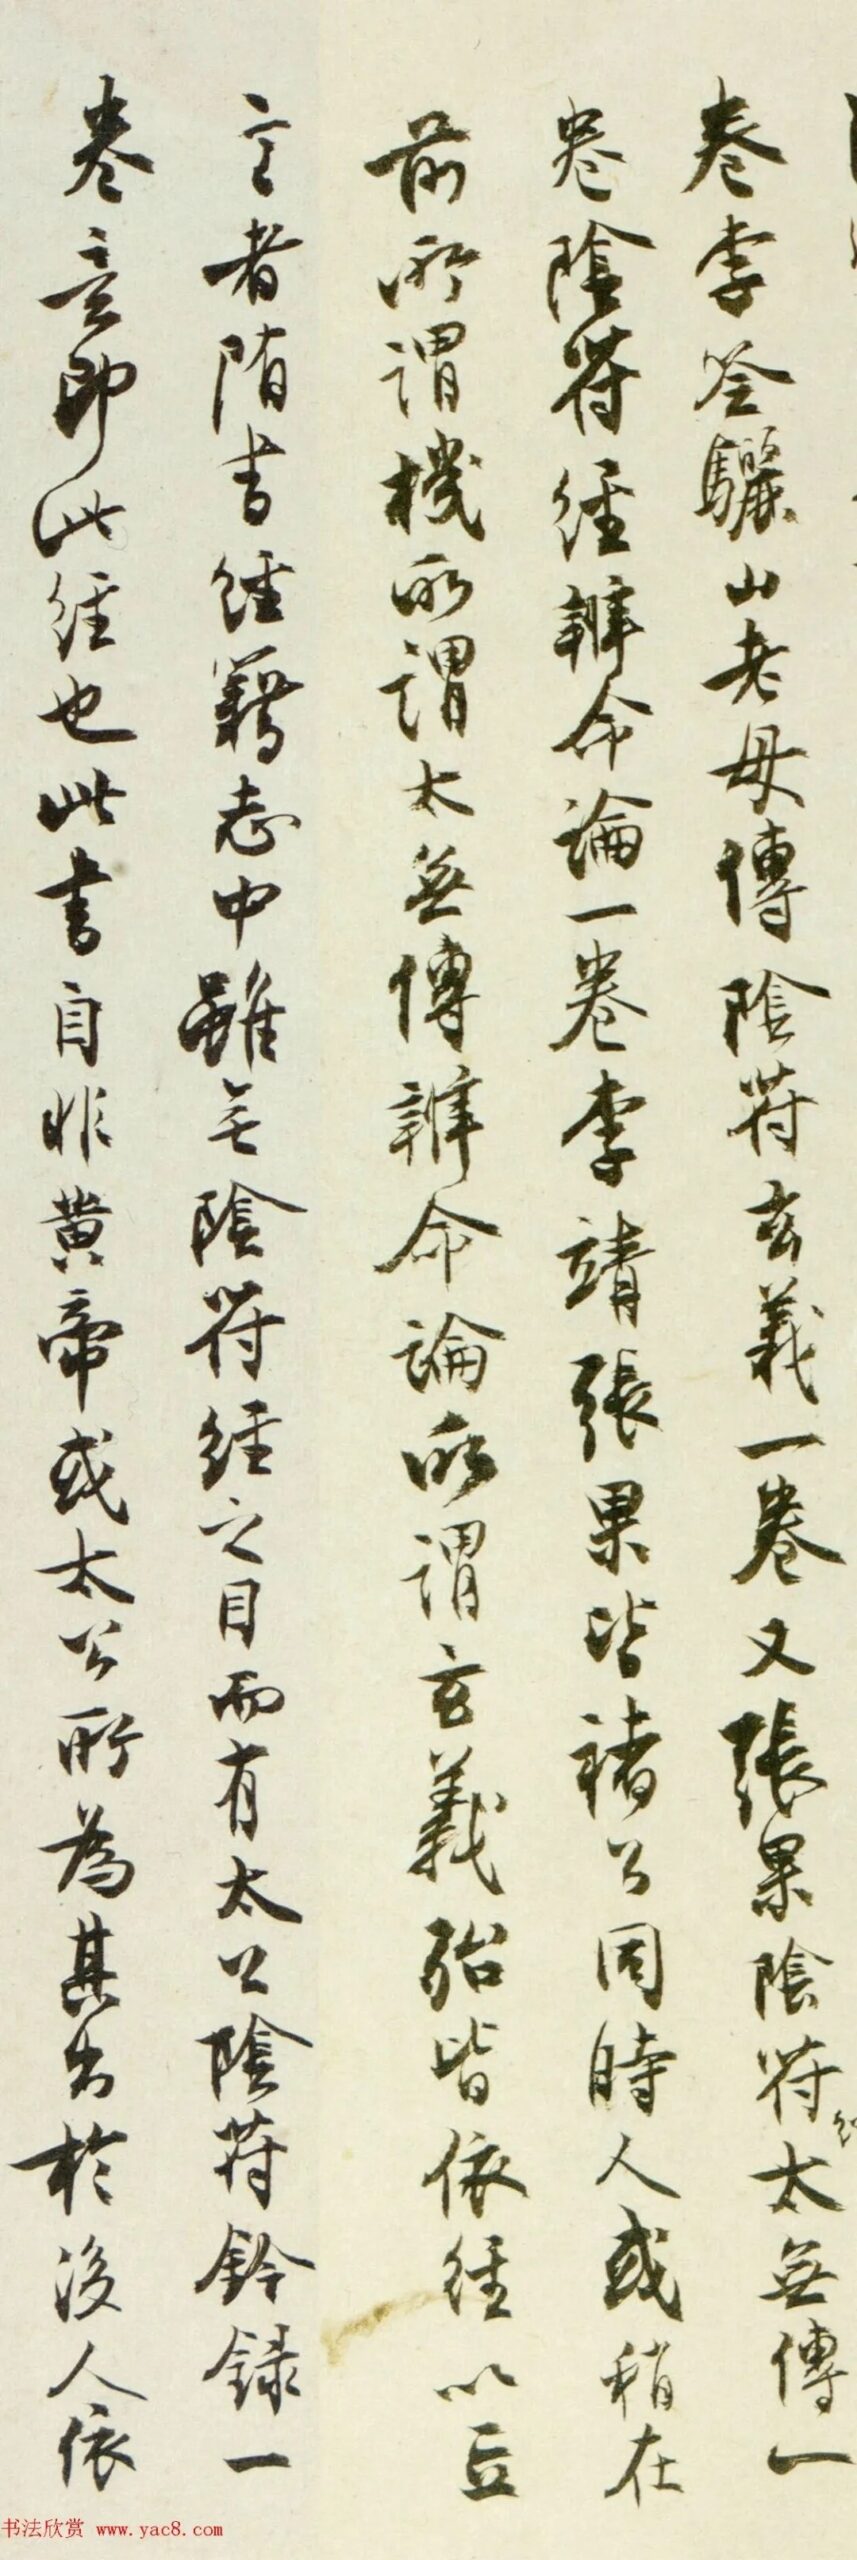 卷李筌驪山老母傳陰符玄義一卷又張果陰符經太無傳一
卷陰符經辨命論一卷李靖張果皆褚公同時人或稍在
前所謂機所謂太無傳辨命論所謂玄義殆皆依經以立
言者隋書經籍志中雖無陰符經之目而有太公陰符鈐錄一
卷意即此經也此書自非黄帝或太公所為其出於後人依
书法欣赏 www.yac8.com